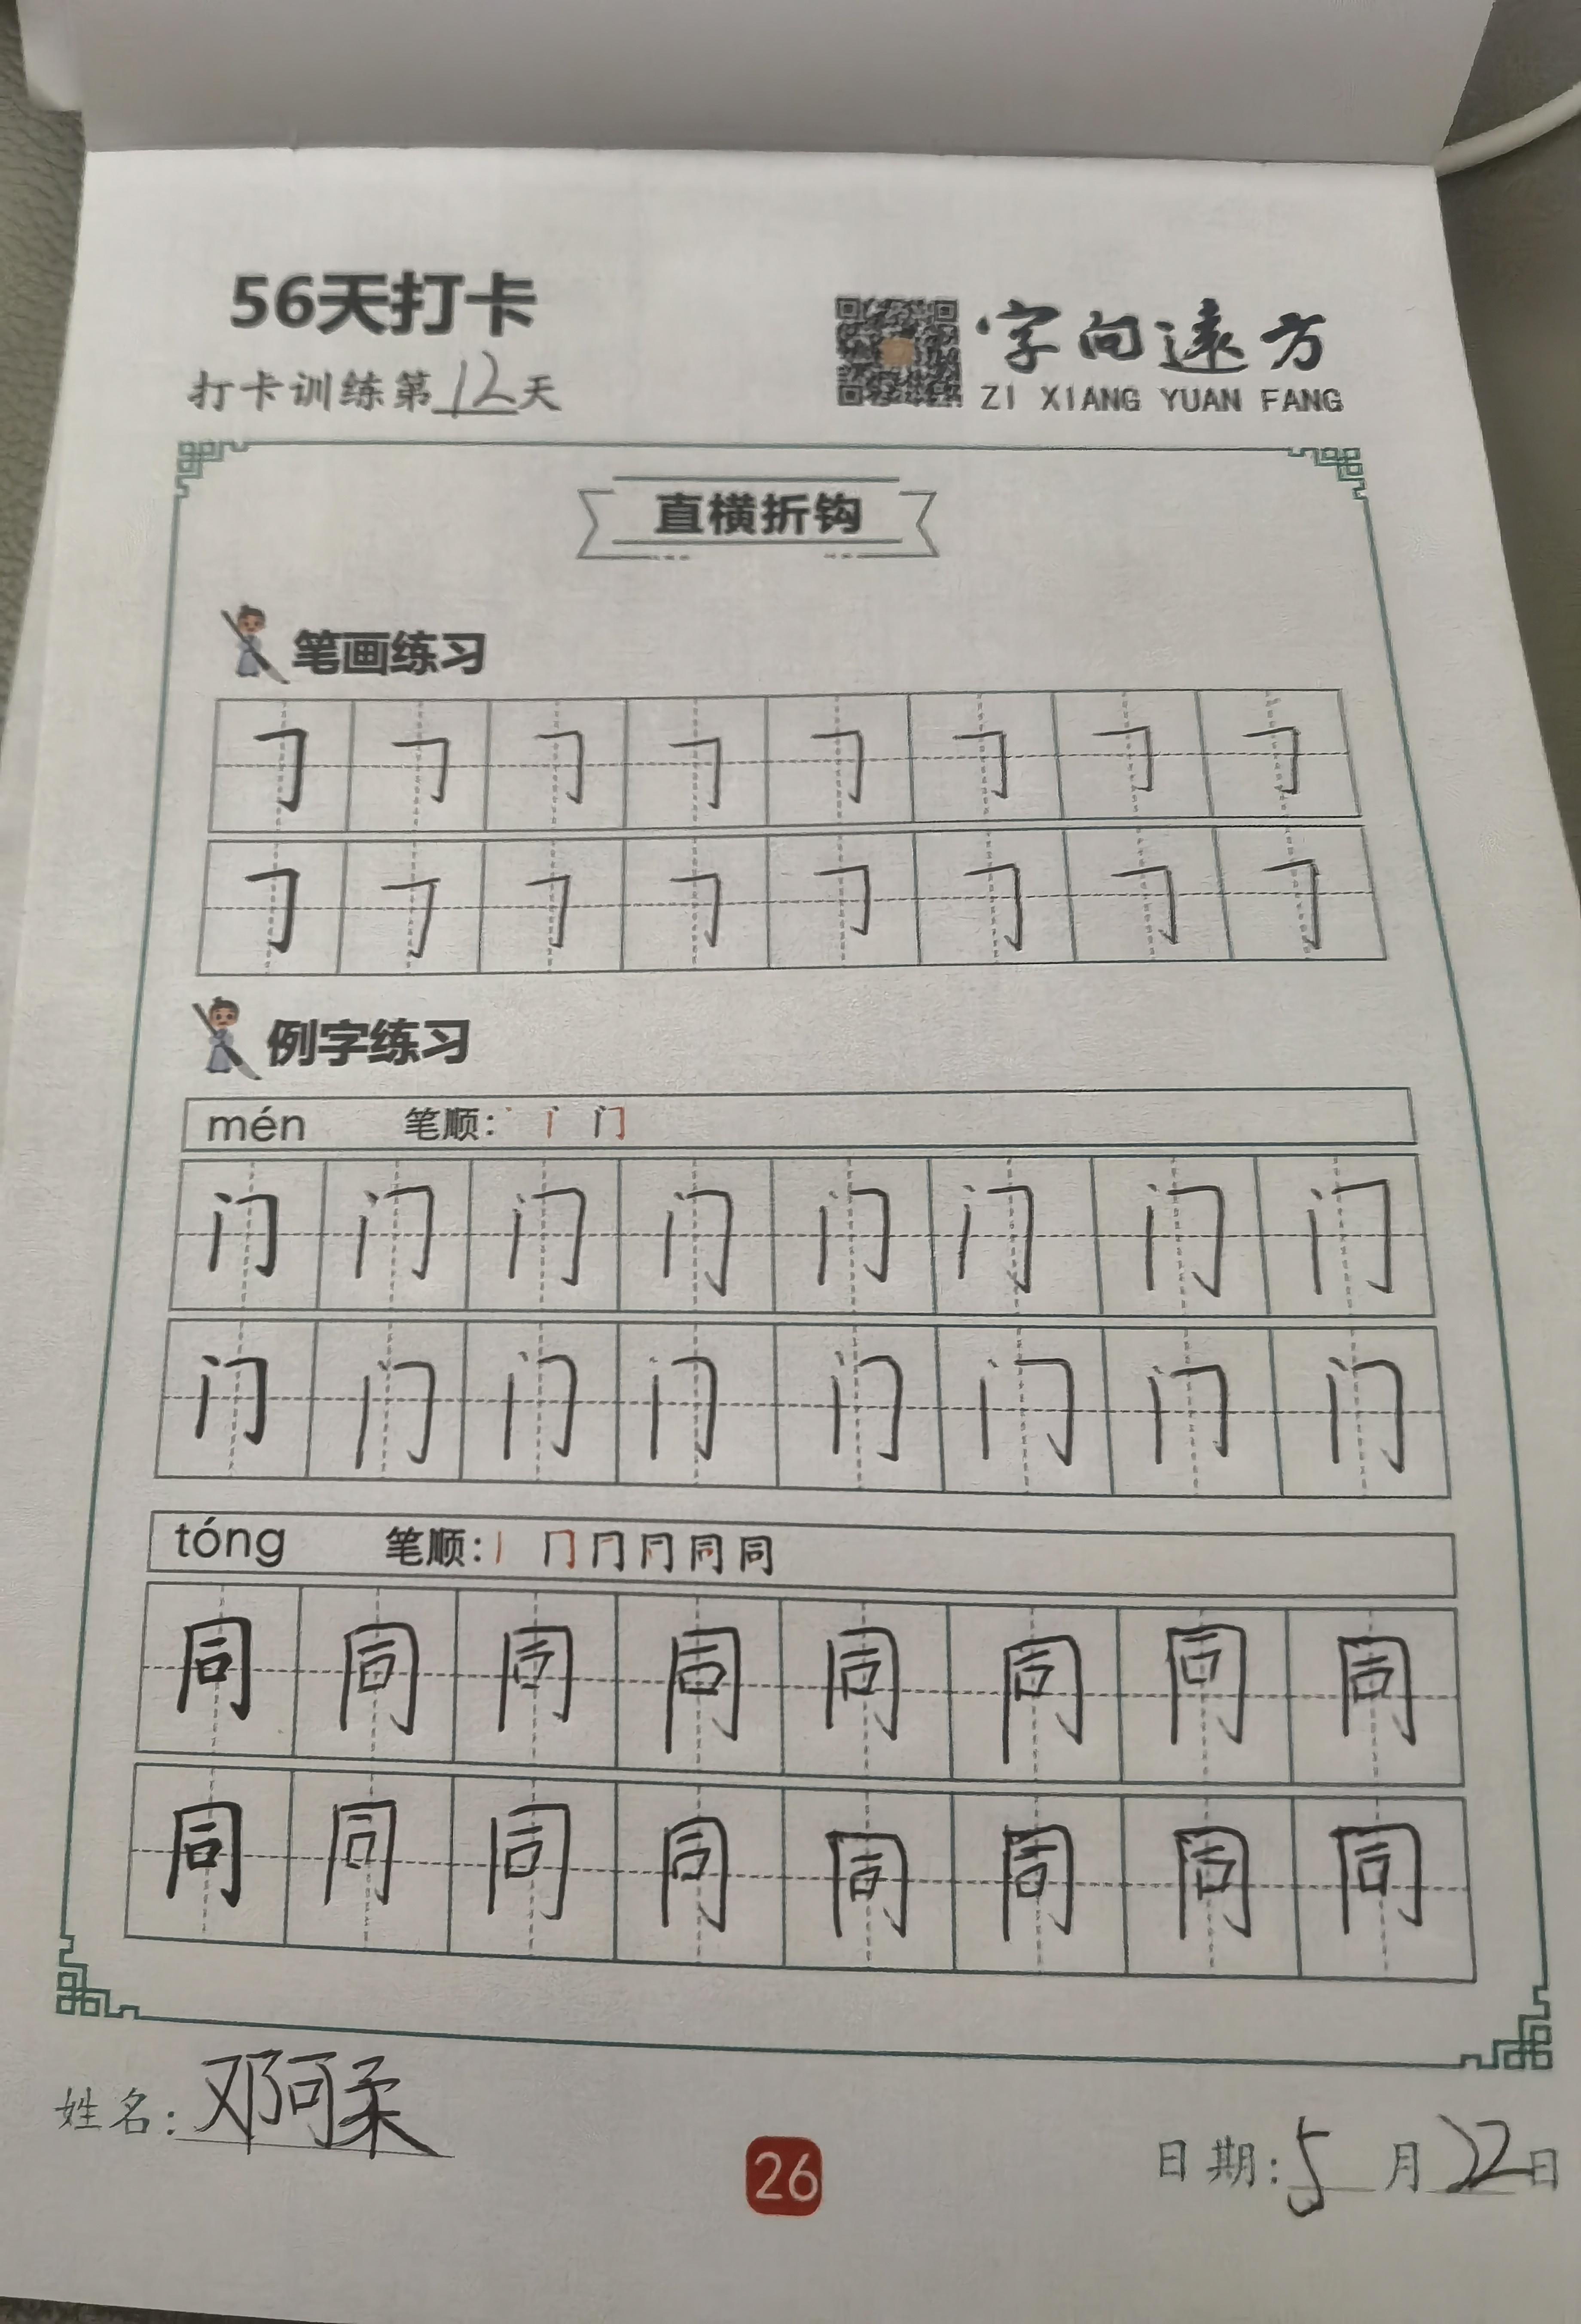 56天打卡
打卡训练第12天
字向遠方
ZI XIANG YUAN FANG
直横折钩
笔画练习
㇆ ㇆ ㇆ ㇆ ㇆ ㇆ ㇆ ㇆
㇆ ㇆ ㇆ ㇆ ㇆ ㇆ ㇆ ㇆
例字练习
mén 笔顺: 门
门 门 门 门 门 门 门 门
门 门 门 门 门 门 门 门
tóng 笔顺: 丨 冂 同
同 同 同 同 同 同 同 同
同 同 同 同 同 同 同 同
姓名: 邓阿柔
26
日期: 5月22日